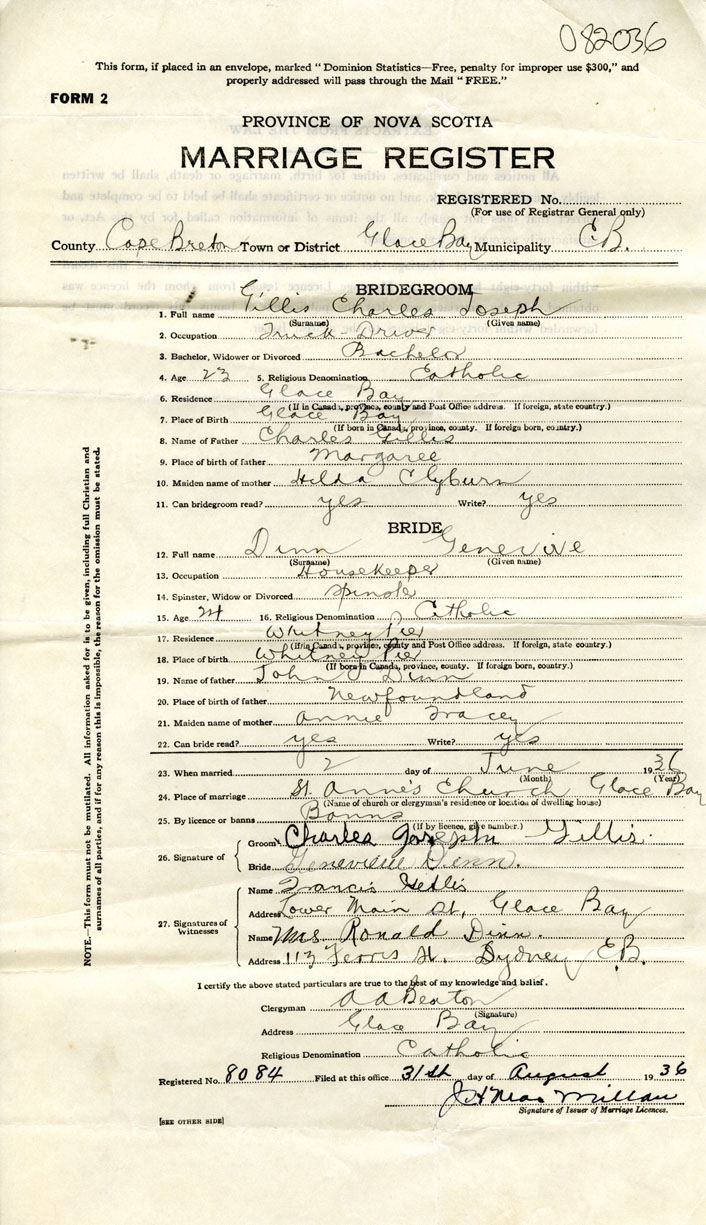 082036
This form, if placed in an envelope, marked "Dominion Statistics—Free, penalty for improper use $300," and
properly addressed will pass through the Mail "FREE."
FORM 2
PROVINCE OF NOVA SCOTIA
MARRIAGE REGISTER
REGISTERED No.
(For use of Registrar General only)
County Cape Breton Town or District Glace Bay Municipality C.B.
BRIDEGROOM
1. Full name Gillis Charles Joseph
(Surname) (Given name)
2. Occupation Truck Driver
3. Bachelor, Widower or Divorced Bachelor
4. Age 23 5. Religious Denomination Catholic
6. Residence Glace Bay
(If in Canada, province, county and Post Office address. If foreign, state country.)
7. Place of Birth Glace Bay
(If born in Canada, province, county. If foreign born, country.)
8. Name of Father Charles Gillis
9. Place of birth of father Margaree
10. Maiden name of mother Hilda Clyburn
11. Can bridegroom read? yes Write? yes
BRIDE
12. Full name Dinn Genevive
(Surname) (Given name)
13. Occupation Housekeeper
14. Spinster, Widow or Divorced
15. Age 24 16. Religious Denomination Catholic
17. Residence Whitney Pier
(If in Canada, province, county and Post Office address. If foreign, state country.)
18. Place of birth Whitney Pier
(If born in Canada, province, county. If foreign born, country.)
19. Name of father John Dinn
20. Place of birth of father Newfoundland
21. Maiden name of mother Annie Tracey
22. Can bride read? yes Write? yes
23. When married 2 day of June 1936
(Month) (Year)
24. Place of marriage St. Anne's Church Glace Bay
(Name of church or clergyman's residence or location of dwelling house)
25. By licence or banns Banns
(If by licence, give number.)
26. Signature of
Groom Charles Joseph Gillis.
Bride Genevieve Dinn.
27. Signatures of Witnesses
Name Francis
Address Lower Main St, Glace Bay
Name Mrs Ronald Dinn.
Address 113 Ferris St. Sydney C.B.
I certify the above stated particulars are true to the best of my knowledge and belief.
Clergyman A A Beaton
(Signature)
Address Glace Bay
Religious Denomination Catholic
Registered No. 8084 Filed at this office 31st day of August 1936
J H MacMillan
Signature of Issuer of Marriage Licences.
[SEE OTHER SIDE]
NOTE.—This form must not be mutilated. All information asked for is to be given, including full Christian and
surnames of all parties, and if for any reason this is impossible, the reason for the omission must be stated.